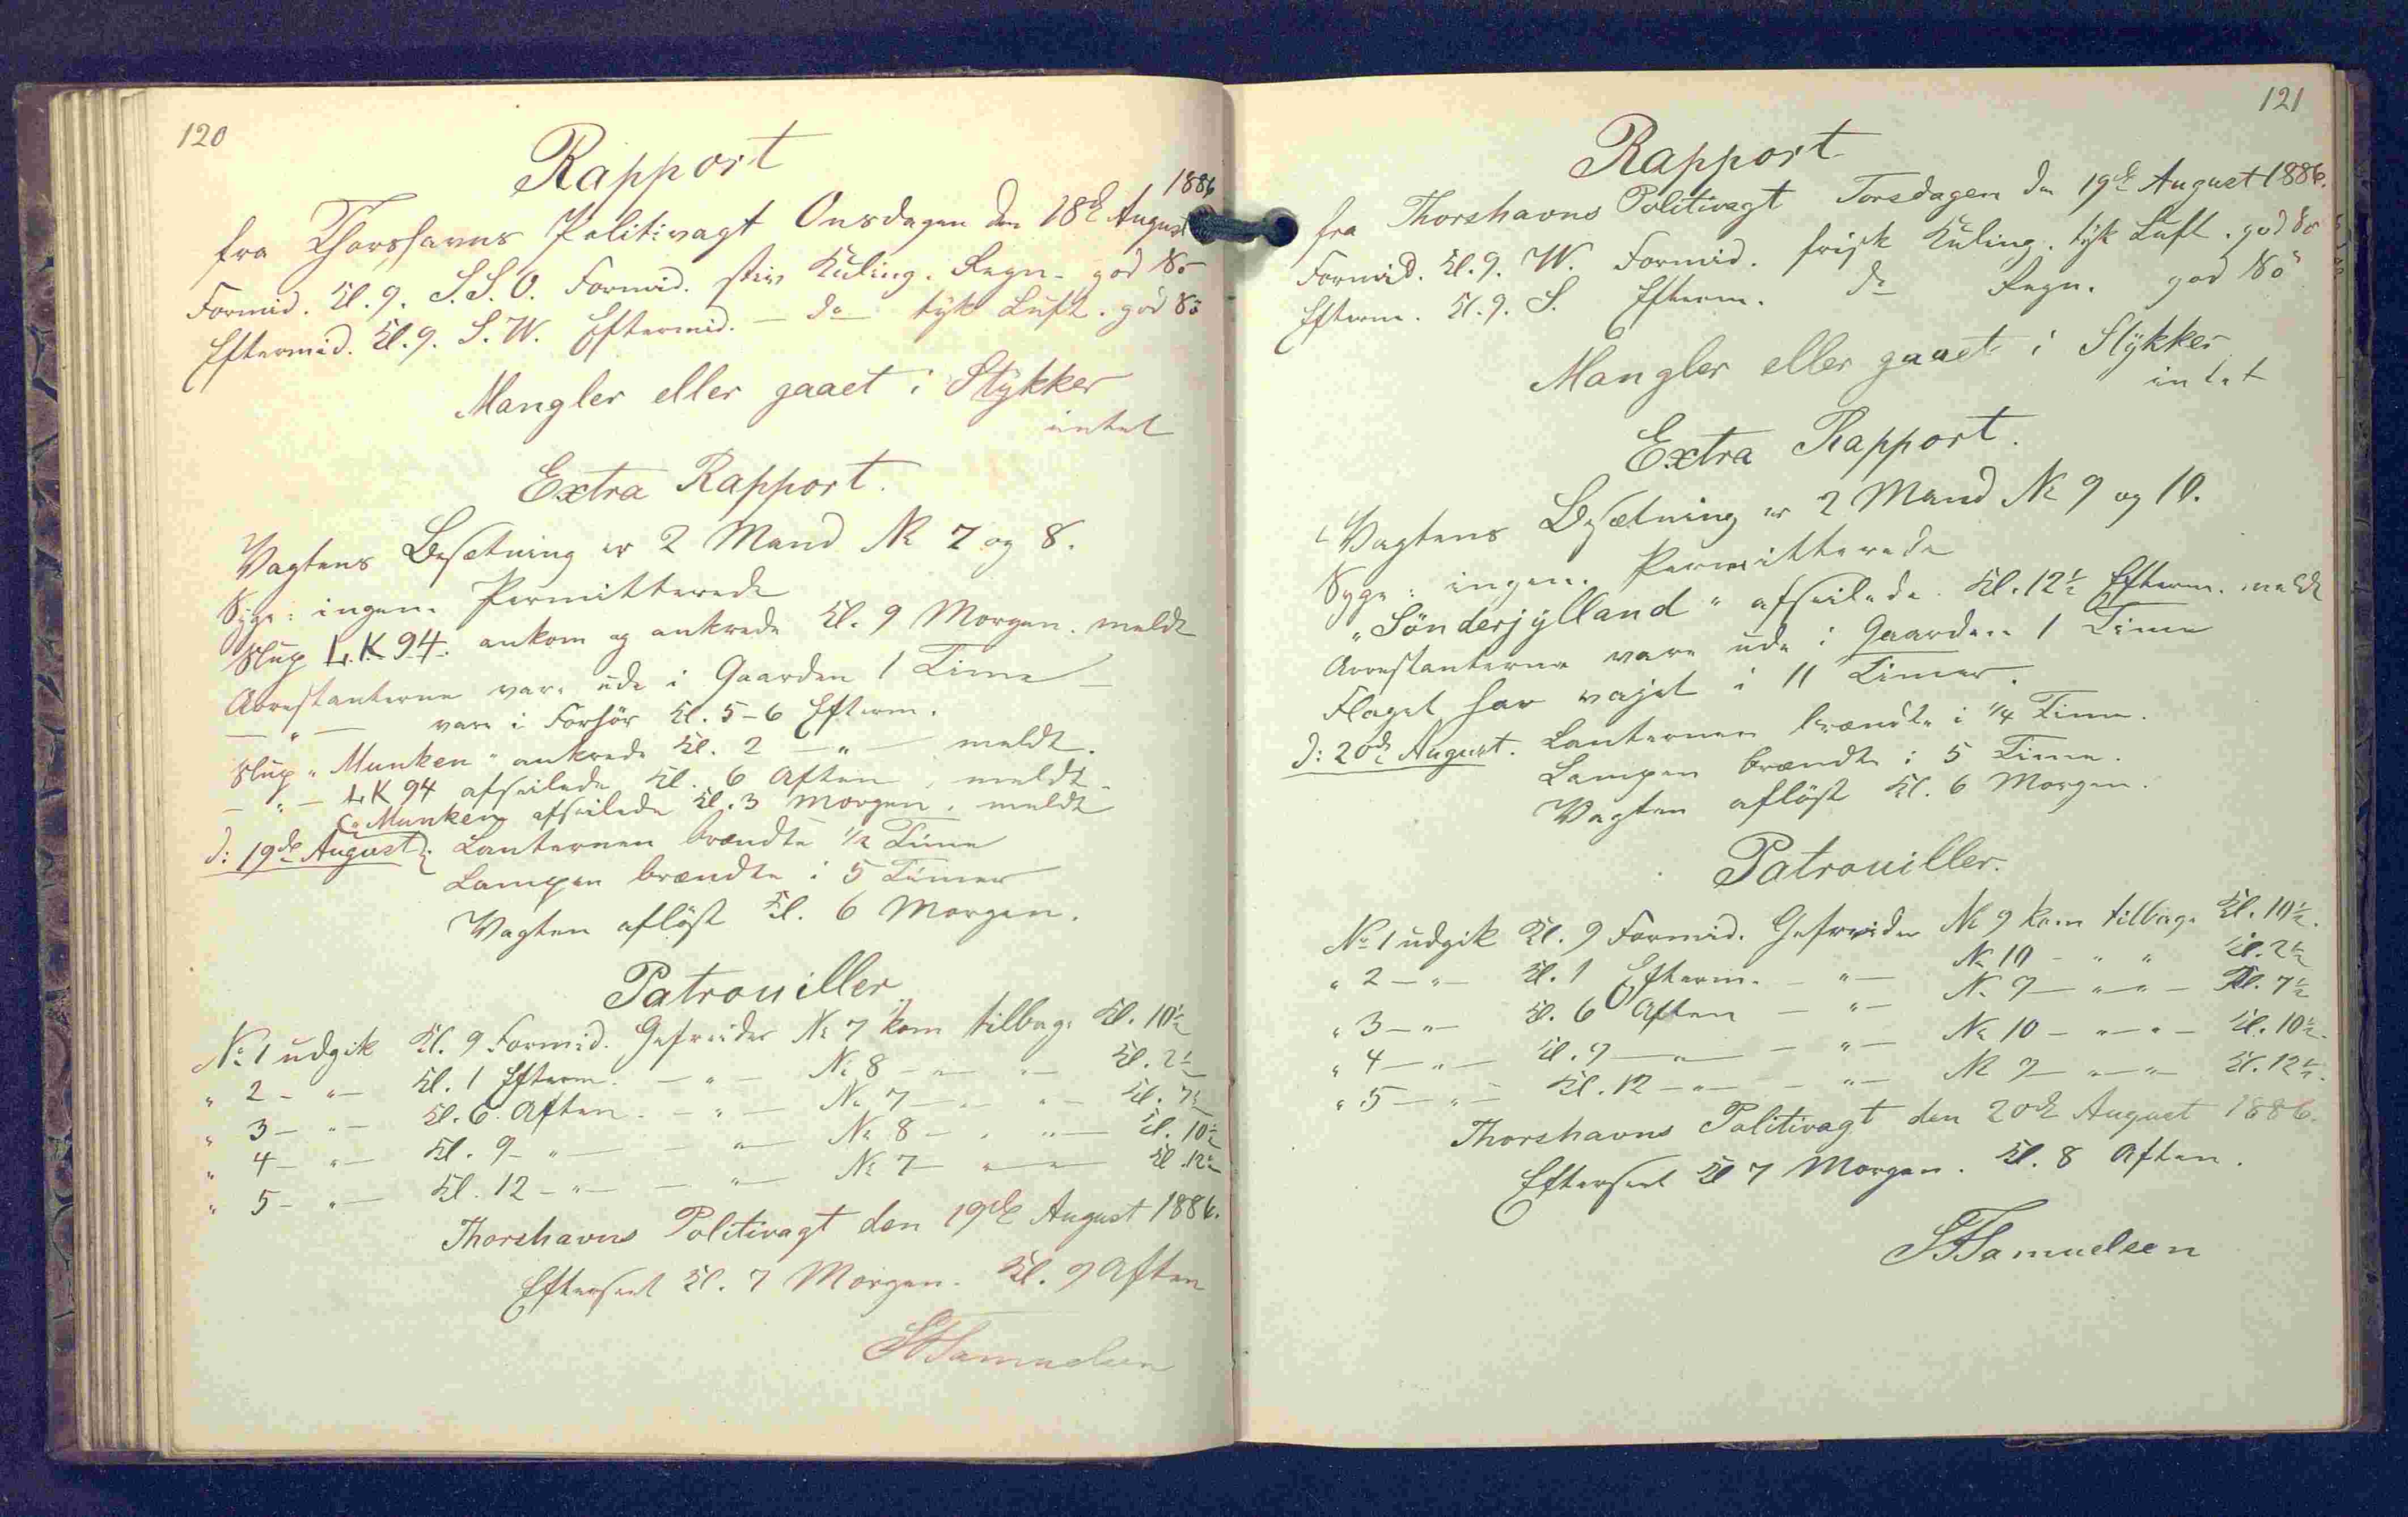 120
Rapport
1886
fra Thorshavns Politivagt Onsdagen den 18de August
Formid. Kl. 9. S.S.O. Formid. stiv Kuling. Regn. god Sö
Eftermid. Kl. 9. S.W. Eftermid. — do — tyk Luft. god Sö
Mangler eller gaaet i Stykker
intet
Extra Rapport.
Vagtens Besætning er 2 Mand No 7 og 8.
Syge: ingen. Permitterede
Slup L.K 94. ankom og ankrede Kl. 9 Morgen. meldt
Arrestanterne vare ude i Gaarden 1 Time
— " — vare i Forhör Kl. 5-6 Efterm.
Slup "Munken" ankrede Kl. 2 — " — meldt.
— " — L.K 94 afseilede Kl. 6 Aften. meldt.
"Munken afseilede Kl. 3 Morgen. meldt
d: 19de August: Lanternen brændte 1/2 Time
Lampen brændte i 5 Timer
Vagten aflöst Kl. 6 Morgen.
Patrouiller
No 1 udgik Kl. 9 Formid. Gefreider No 7 kom tilbage Kl. 10½
" 2 — " — Kl. 1 Efterm. — " — No 8 — " — " — Kl. 2½
" 3 — " — Kl. 6 Aften. — " — No 7 — " — " — Kl. 7½
" 4 — " — Kl. 9 — " — — " — No 8 — " — " — Kl. 10½
" 5 — " — Kl. 12 — " — — " — No 7 — " — " — Kl. 12½
Thorshavns Politivagt den 19de August 1886.
Efterseet Kl. 7 Morgen. Kl. 9 Aften
Samuelsen
121
Rapport
fra Thorshavns Politivagt Torsdagen den 19de August 1886.
Formid. Kl. 9. W. Formid. frisk Kuling. tyk Luft. god Sö
Efterm. Kl. 9. S. Efterm. do Regn. god Sö
Mangler eller gaaet i Stykker
intet
Extra Rapport.
Vagtens Besætning er 2 Mand No 9 og 10.
Syge: ingen. Permitterede
"Sönderjylland" afseilede. Kl. 12½ Efterm. meldt
Arrestanterne vare ude i Gaarden 1 Time
Flaget har vajet i 11 Timer.
d: 20de August. Lanternen brændte i 1/4 Time.
Lampen brændte i 5 Time.
Vagten aflöst Kl. 6 Morgen.
Patrouiller.
No 1 udgik Kl. 9 Formid. Gefreider No 9 kom tilbage Kl. 10½.
" 2 — " — Kl. 1 Efterm. — " — No 10 — " " Kl. 2½
" 3 — " — Kl. 6 Aften — " — No 9 — " — " — Kl. 7½
" 4 — " — Kl. 9 — " — — " — No 10 — " — " — Kl. 10½.
" 5 — " — Kl. 12 — " — — " — No 9 — " — " — Kl. 12½.
Thorshavns Politivagt den 20de August 1886.
Efterseet Kl 7 Morgen. Kl. 8 Aften.
Samuelsen